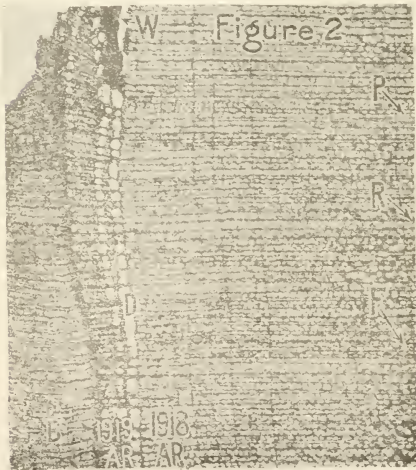 W Figure 2
P
R
F
D
1918 1918
AR AR